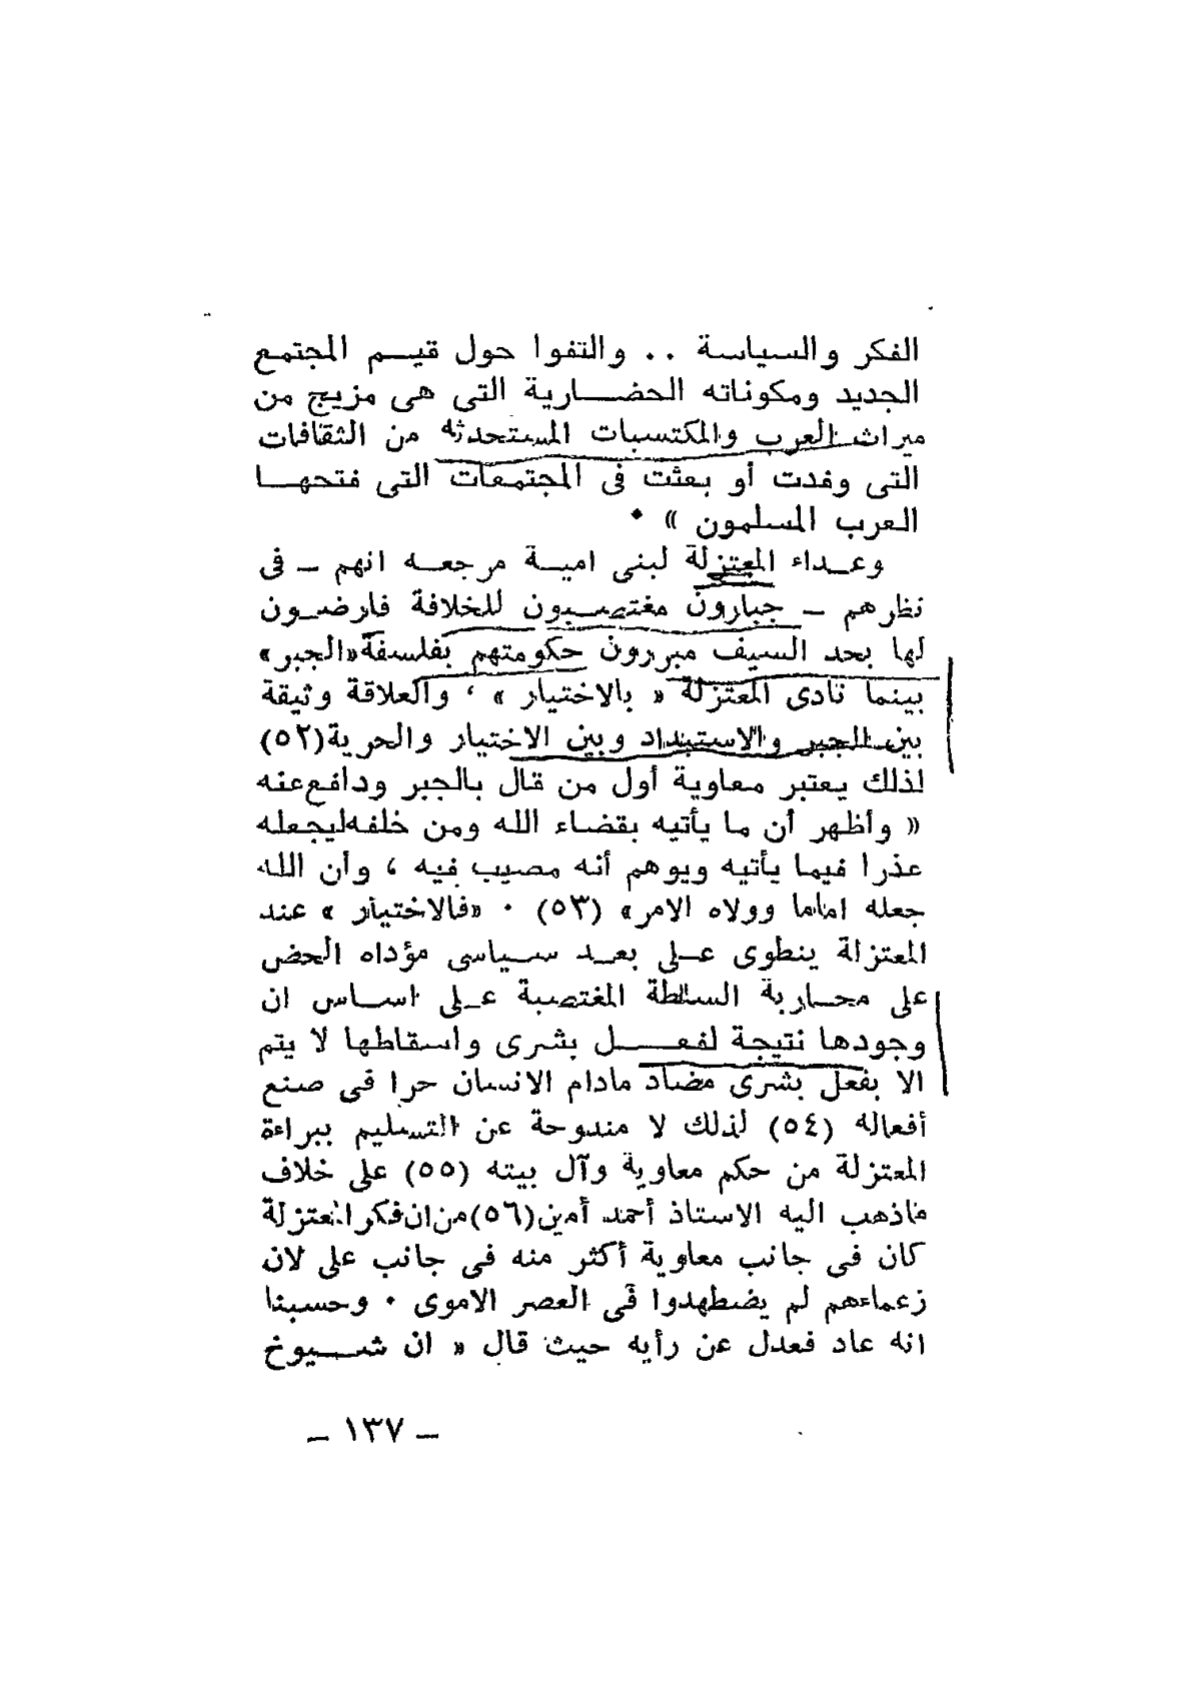 الفكر والسياسة . . والتفوا حول قيم المجتمع
الجديد ومكوناته الحضارية التى هى مزيج من
ميراث العرب والمكتسبات المستحدثة من الثقافات
التى وفدت أو بعثت فى المجتمعات التى فتحها
العرب المسلمون » •
وعداء المعتزلة لبنى امية مرجعه انهم — فى
نظرهم — جبارون مغتصبون للخلافة فارضون
لها بحد السيف مبررون حكومتهم بفلسفة «الجبر»
بينما نادى المعتزلة « بالاختيار » ، والعلاقة وثيقة
بين الجبر والاستبداد وبين الاختيار والحرية(٥٢)
لذلك يعتبر معاوية أول من قال بالجبر ودافع عنه
« وأظهر أن ما يأتيه بقضاء الله ومن خلفه ليجعله
عذرا فيما يأتيه ويوهم أنه مصيب فيه ، وأن الله
جعله اماما وولاه الامر» (٥٣) • «فالاختيار » عند
المعتزلة ينطوى على بعد سياسى مؤداه الحض
على محاربة السلطة المغتصبة على اساس ان
وجودها نتيجة لفعل بشرى واسقاطها لا يتم
الا بفعل بشرى مضاد مادام الانسان حرا فى صنع
أفعاله (٥٤) لذلك لا مندوحة عن التسليم ببراءة
المعتزلة من حكم معاوية وآل بيته (٥٥) على خلاف
ماذهب اليه الاستاذ أحمد أمين(٥٦)من ان فكر المعتزلة
كان فى جانب معاوية أكثر منه فى جانب على لان
زعماءهم لم يضطهدوا فى العصر الاموى • وحسبنا
انه عاد فعدل عن رأيه حيث قال « ان شيوخ
— ١٣٧ —